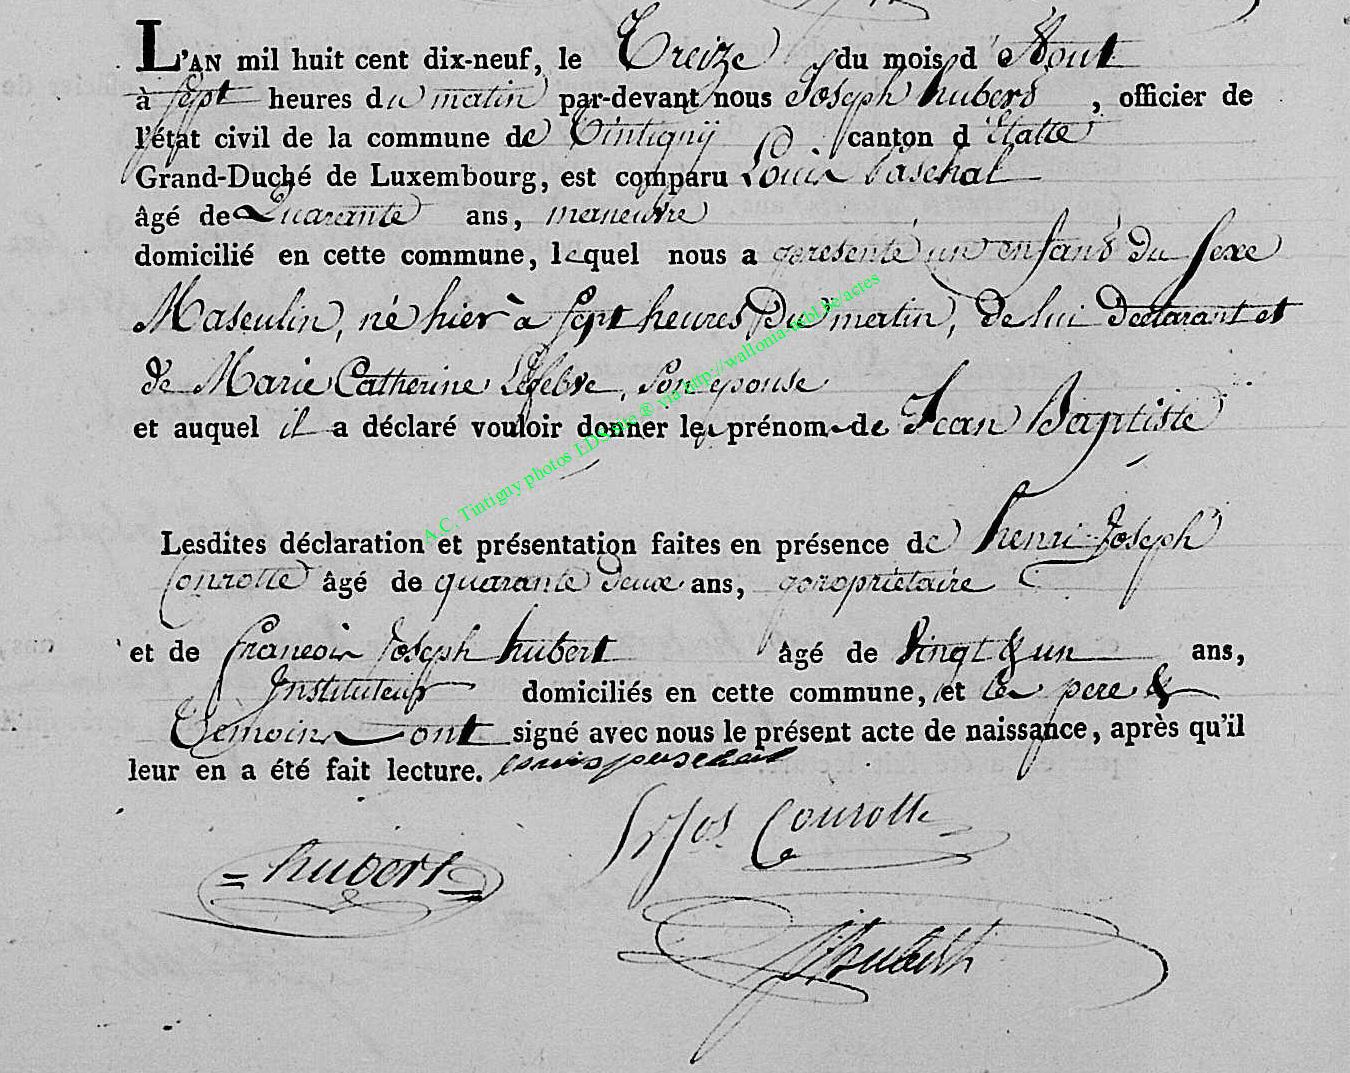 L'AN mil huit cent dix-neuf, le Treize du mois d'Aout
à sept heures du matin par-devant nous Joseph hubert, officier de
l'état civil de la commune de Tintignÿ canton d'Etalle
Grand-Duché de Luxembourg, est comparu Louis Paschal
âgé de Quarante ans, maneuvre
domicilié en cette commune, lequel nous a presenté un enfant du sexe
Masculin, né hier à sept heures Du matin, de lui declarant et
de Marie Catherine Lefebvre, son epouse
et auquel il a déclaré vouloir donner les prénoms de Jean Baptiste
Lesdites déclaration et présentation faites en présence de henri Joseph
Conrotte âgé de quarante deux ans, proprietaire
et de francois Joseph hubert âgé de Vingt & un ans,
Instituteur domiciliés en cette commune, et les pere &
Temoins ont signé avec nous le présent acte de naissance, après qu'il
leur en a été fait lecture. Louis paschal
hr Jos. Conrotte
= hubert =
hubert
A.C. Tintigny photos LDS site ® via http://wallonia-asbl.be/actes